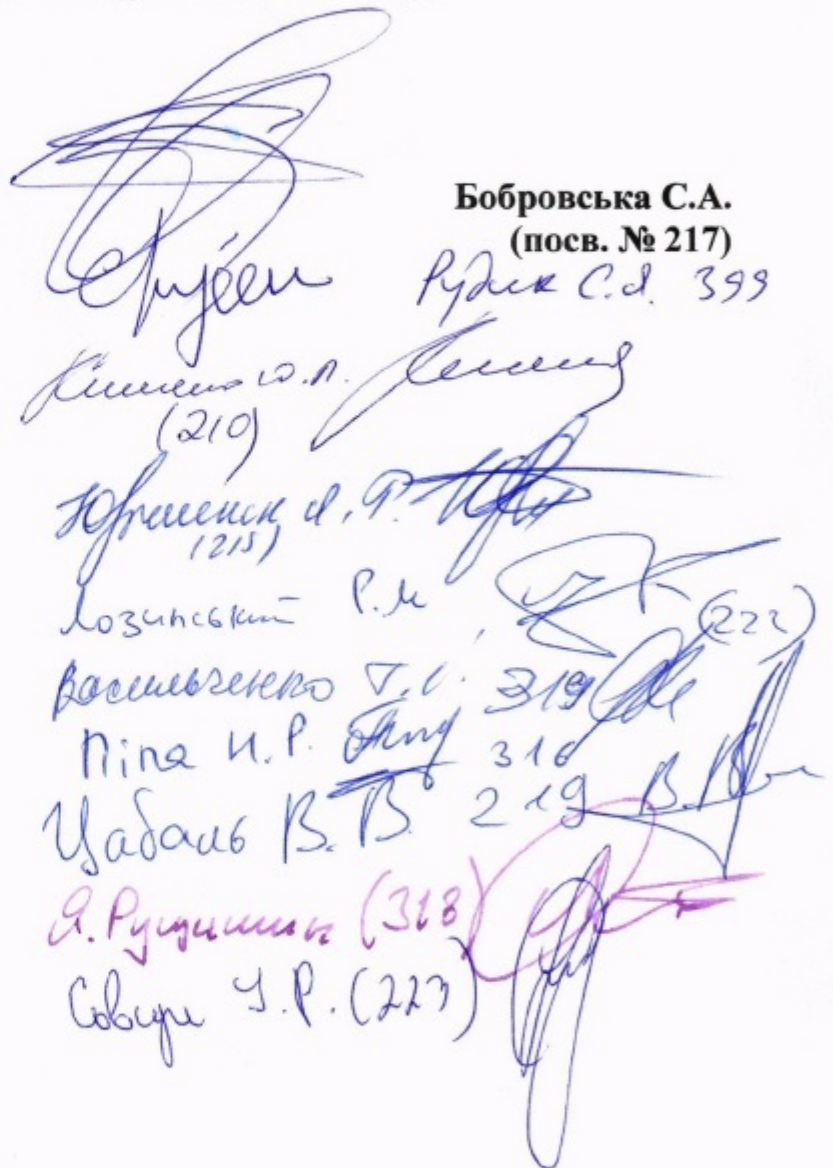 Бобровська С.А.
(посв. № 217)
Рудик С.Я. 399
Клименко Ю.Л.
(210)
Юрчишин Я.Р.
(215)
Лозинський Р.М (222)
Васильченко Г.І. 319
Піпа Н.Р. 316
Цабаль В.В. 219
Я. Рущишин (318)
Совсун І.Р. (223)